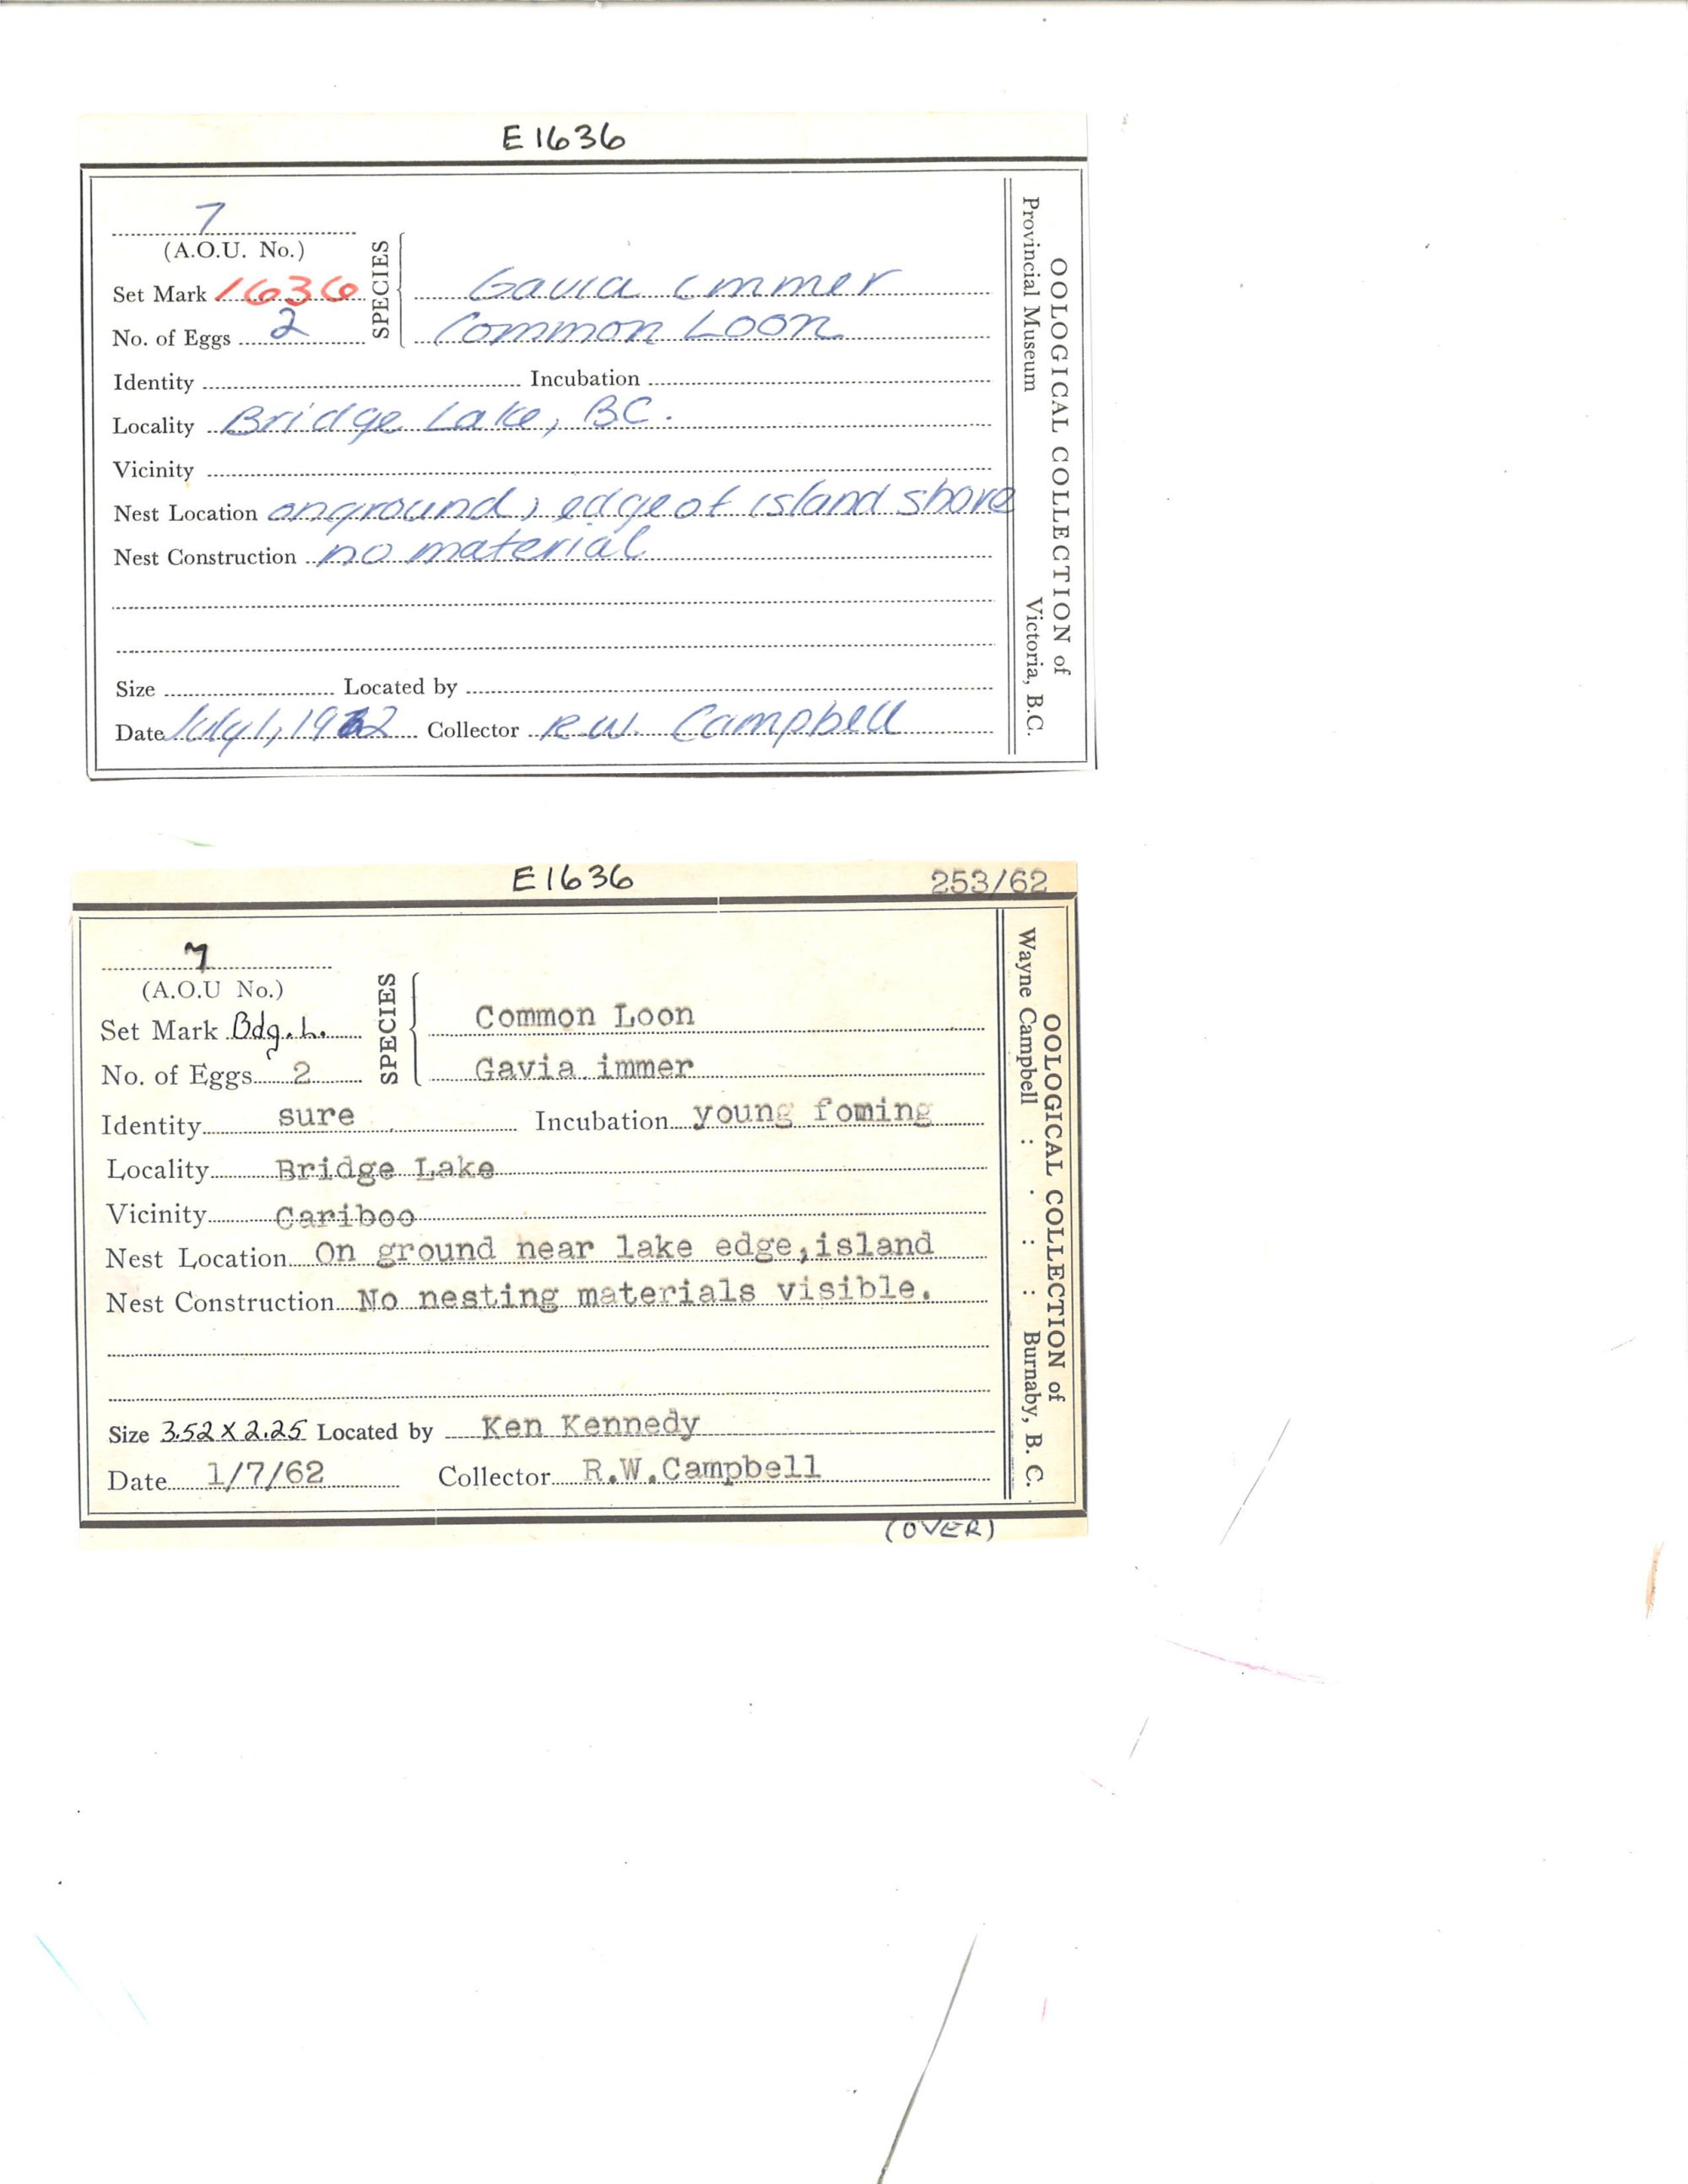 E1636
7
(A.O.U. No.)
Set Mark 1636
No. of Eggs 2
SPECIES
Gavia immer
Common Loon
Identity Incubation
Locality Bridge Lake, BC.
Vicinity
Nest Location on ground, edge of island shore
Nest Construction no material
Size Located by
Date July 1, 1962 Collector R.W. Campbell
OOLOGICAL COLLECTION of
Provincial Museum Victoria, B.C.
E1636
253/62
7
(A.O.U No.)
Set Mark Bdg. L.
No. of Eggs 2
SPECIES
Common Loon
Gavia immer
Identity sure Incubation young foming
Locality Bridge Lake
Vicinity Cariboo
Nest Location On ground near lake edge,island
Nest Construction No nesting materials visible.
Size 3.52 X 2.25 Located by Ken Kennedy
Date 1/7/62 Collector R.W.Campbell
OOLOGICAL COLLECTION of
Wayne Campbell : . : : Burnaby, B. C.
(OVER)